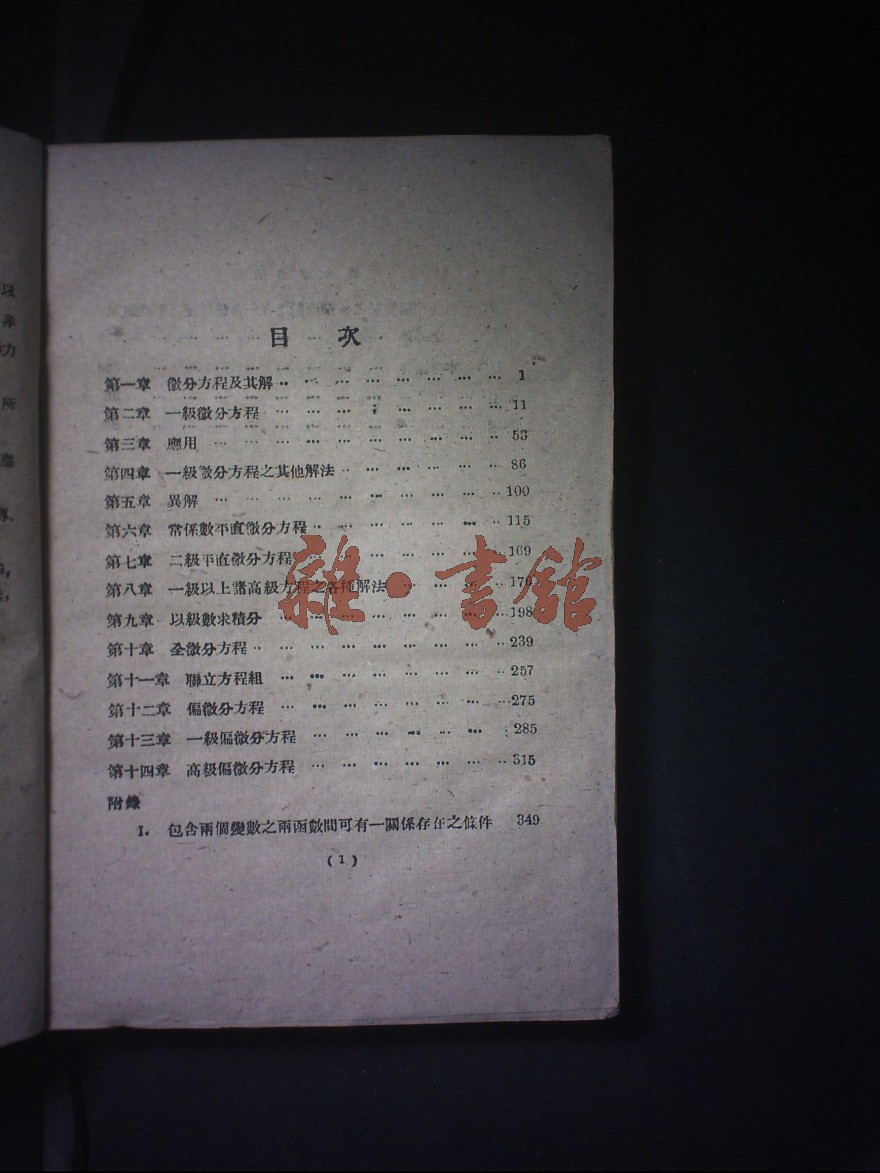 目 次
第一章 微分方程及其解 … … … … … … … … 1
第二章 一級微分方程 … … … … … … … … 11
第三章 應用 … … … … … … … … … … 53
第四章 一級微分方程之其他解法 … … … … … … 86
第五章 異解 … … … … … … … … … … 100
第六章 常係數平直微分方程 … … … … … … … 115
第七章 二級平直微分方程 … … … … … … … 169
第八章 一級以上諸高級方程之各種解法 … … … …
第九章 以級數求積分 … … … … … … … … 198
第十章 全微分方程 … … … … … … … … … 239
第十一章 聯立方程組 … … … … … … … … 257
第十二章 偏微分方程 … … … … … … … … 275
第十三章 一級偏微分方程 … … … … … … … 285
第十四章 高級偏微分方程 … … … … … … … 315
附錄
I. 包含兩個變數之兩函數間可有一關係存在之條件 349
(1)
雜·書館
以
非
力
所
應